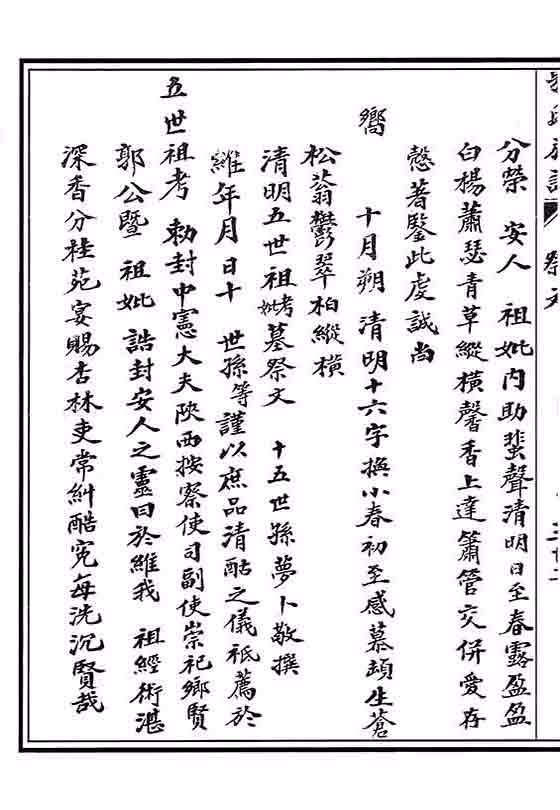 分榮 安人 祖妣內助蜚聲清明日至春露盈盈
白楊蕭瑟青草縱橫馨香上達簫管交併愛存
慤著鑒此虔誠尚
嚮
十月朔 清明十六字換小春初至感慕頓生蒼
松蓊鬱翠柏縱橫
清明五世祖考妣墓祭文 十五世孫夢卜敬撰
維年月日十 世孫等謹以庶品清酤之儀祗薦於
五世祖考 勅封中憲大夫陝西按察使司副使崇祀鄉賢
郭公暨 祖妣 誥封安人之靈曰於維我 祖經術湛
深香分桂苑宴賜杏林吏常糾酷冤每洗沉賢哉